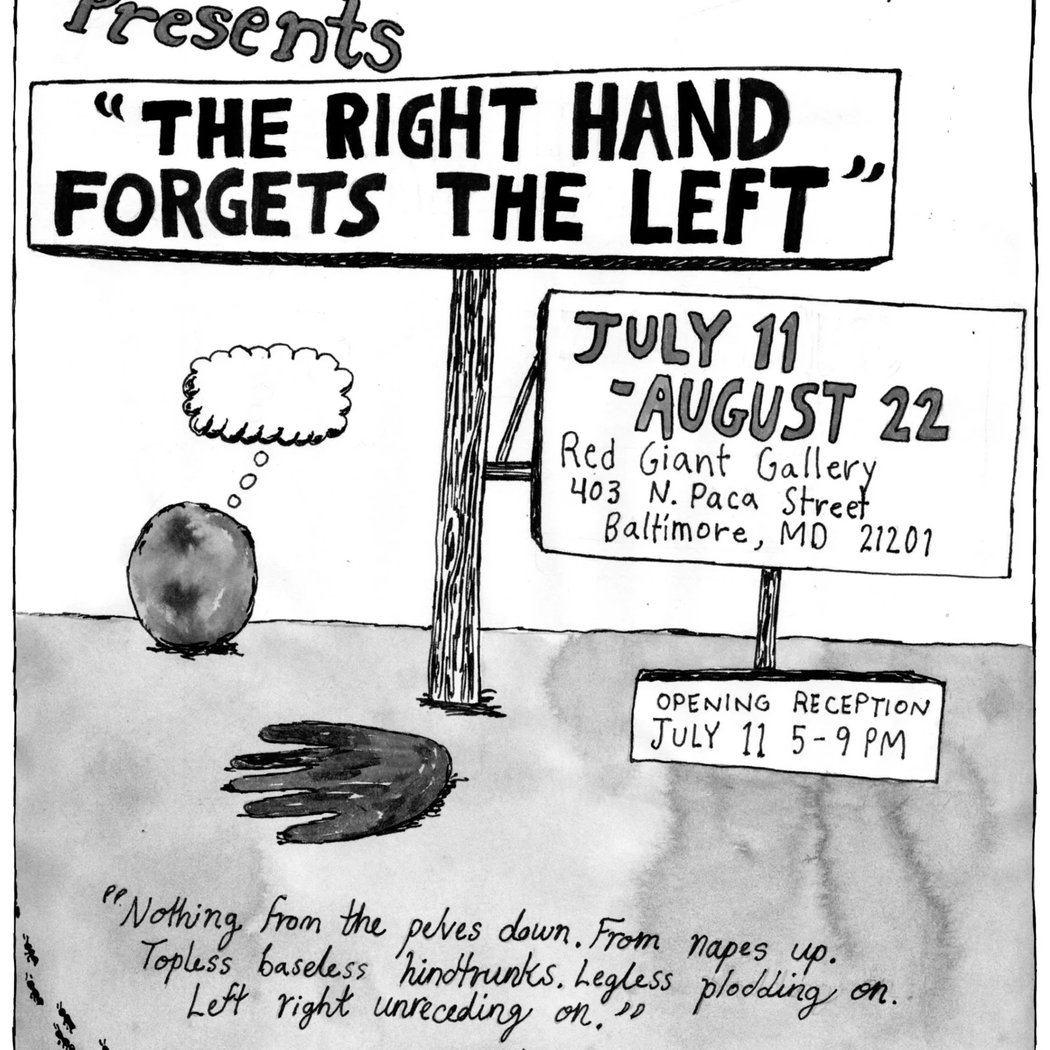 Presents
"THE RIGHT HAND
FORGETS THE LEFT"
JULY 11
-AUGUST 22
Red Giant Gallery
403 N. Paca Street
Baltimore, MD 21201
OPENING RECEPTION
JULY 11 5-9 PM
"Nothing from the pelves down. From napes up.
Topless baseless hindtrunks. Legless plodding on.
Left right unreceding on."